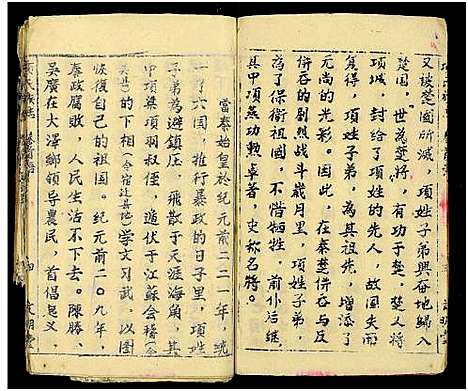 又被楚國所滅，項姓子弟興奮地歸入
楚國，世為楚將，有功于楚，楚人將
項城，封給了項姓的先人，故國失而
復得，項姓子弟，為其祖先，增添了
無尚的光彩。因此，在秦楚併吞與反
併吞的烈戰斗歲月里，項姓子弟，
為了保衛祖國，不惜牺牲，前仆后继，
其中項燕功勲卓著，史称名將。
當秦始皇於紀元前二二一年，統
一了六國，推行暴政的日子里，項姓
子弟為避鎮圧，飛散于天涯海角，其
中項梁項羽叔侄，遁伏于江蘇会稽(今
吴县)下相(今宿迁县地)学文习武，以图
恢復自己的祖國。纪元前二0九年，
秦政腐敗，人民生活不下去。陳勝、
吴廣在大澤鄉領導農民，首倡起义，